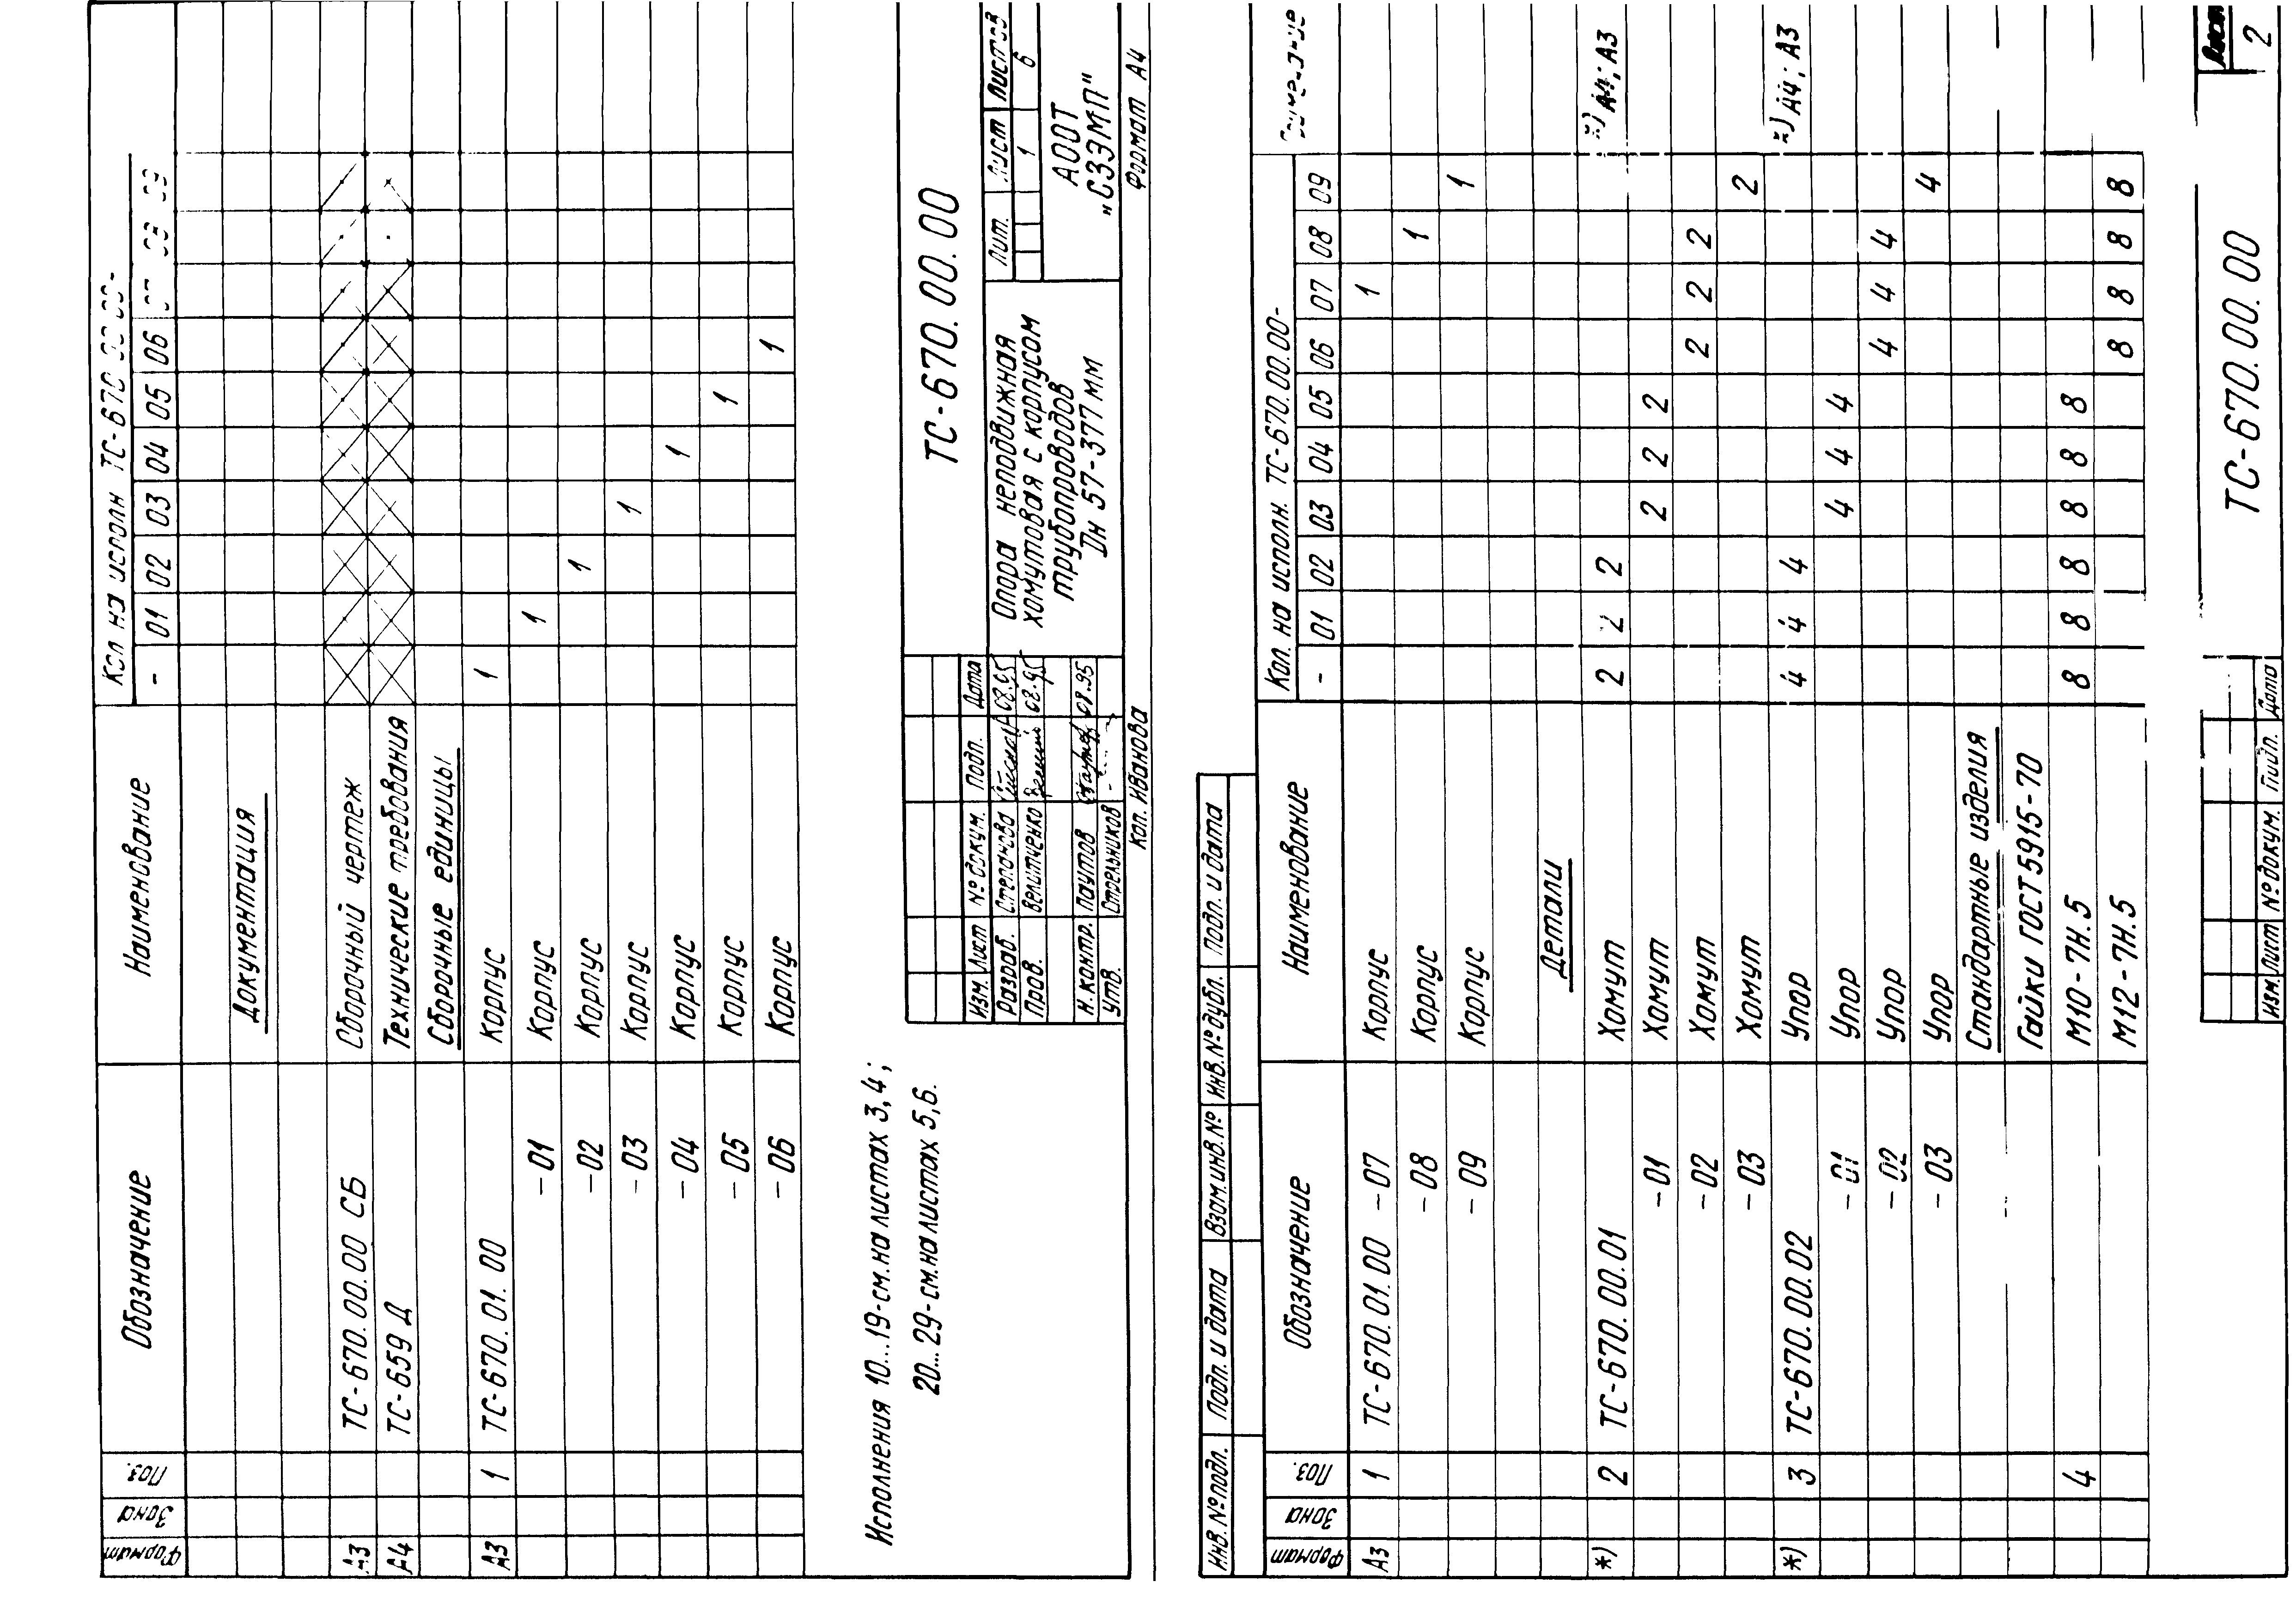 Формат Зона Поз. Обозначение Наименование Кол на исполн ТС-670
- 01 02 03 04 05 06
Документация
А3 ТС-670.00.00 СБ Сборочный чертеж
А4 ТС-659 Д Технические требования
Сборочные единицы
А3 1 ТС-670.01.00 Корпус 1
-01 Корпус 1
-02 Корпус 1
-03 Корпус 1
-04 Корпус 1
-05 Корпус 1
-06 Корпус 1
Исполнения 10...19-см.на листах 3,4;
20...29-см.на листах 5,6.
ТС-670.00.00
Изм. Лист № докум. Подп. Дата
Разраб. Степанова 08.95
Пров. Велитченко 08.95
Н.контр. Паутов 08.95
Утв. Стрельников
Опора неподвижная
хомутовая с корпусом
трубопроводов
Дн 57-377 мм
Лит. Лист Листов
1 6
АООТ
„СЗЭМП"
Коп. Иванова Формат А4
Инв.№подл. Подп. и дата Взам.инв.№ Инв.№дубл. Подп. и дата
Формат Зона Поз. Обозначение Наименование Кол. на исполн. ТС-670.00.00-
- 01 02 03 04 05 06 07 08 09
А3 1 ТС-670.01.00 -07 Корпус 1
-08 Корпус 1
-09 Корпус 1
Детали
*) 2 ТС-670.00.01 Хомут 2 2 2 *) А4; А3
-01 Хомут 2 2 2
-02 Хомут 2 2 2
-03 Хомут 2
*) 3 ТС-670.00.02 Упор 4 4 4 *) А4; А3
-01 Упор 4 4 4
-02 Упор 4 4 4
-03 Упор 4
Стандартные изделия
Гайки ГОСТ 5915-70
4 М10-7Н.5 8 8 8 8 8 8
М12-7Н.5 8 8 8 8
Изм. Лист № докум. Подп. Дата
ТС-670.00.00
Лист
2